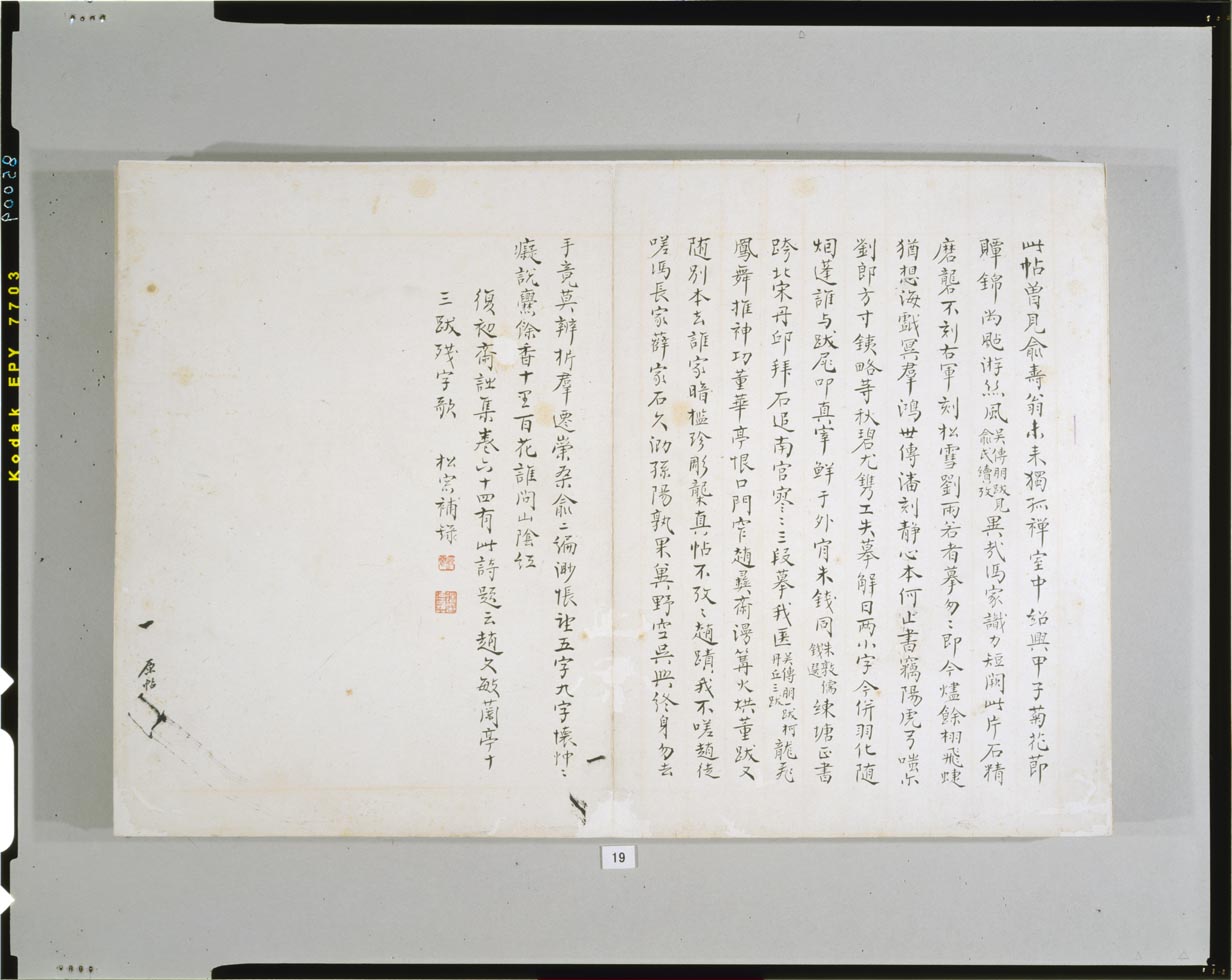 此帖曾見俞壽翁未來獨孤禪室中紹興甲子菊花節
贉錦尚颭游絲風吳傅朋跋見俞氏續攷異哉馮家識力短闕此片石精
磨礲不刻右軍刻松雪劉雨若者摹勿勿即今燼餘栩飛蜨
猶想海戲冥羣鴻世傳潘刻靜心本何止書竊陽虎弓嗤尔
劉郎方寸鐵略等秋碧尤雋工失摹解曰兩小字今併羽化随
烟蓬誰与跋尾叩真宰鮮于外有朱錢同朱敦儒錢選練塘正書
跨北宋丹邱拜石追南宮寥寥三段摹我匡吳傅朋一跋柯丹丘三跋龍飛
鳳舞推神功董華亭恨口門窄趙彝齋漫篝火烘董跋又
随別本去誰家暗槛珍彫櫜真帖不攷攷趙蹟我不嗟趙徒
嗟馮長家薛家石久泐孫陽孰果冀野空吳興終身勿去
手竟莫辨析羣遷崇桑俞二編渺悵望五字九字懷忡忡
癡說鸞餘香十里百花誰問山陰紅
復初齋詩集卷六十四有此詩題云趙文敏蘭亭十
三跋殘字歌 松窗補錄
原帖
19
Kodak EPY 7703